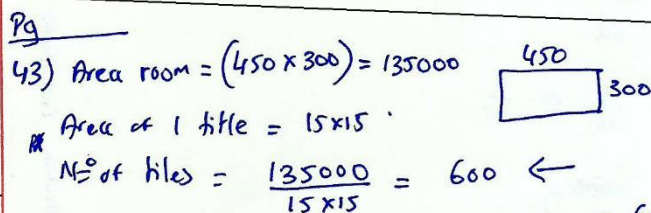 Pg
43) Area room = (450 x 300) = 135000
450
300
Area of 1 title = 15x15
Nº of tiles = 135000 / 15 x 15 = 600 ←